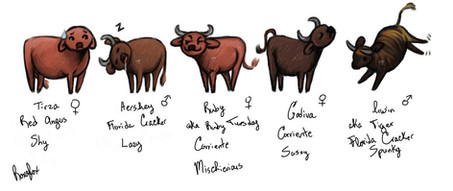 z
Tirza ♀
Red Angus
Shy
Hershey ♂
Florida Cracker
Lazy
Ruby ♀
aka Ruby Tuesday
Corriente
Mischievious
Godiva ♀
Corriente
Sassy
♂
aka Tiger
Florida Cracker
Spunky